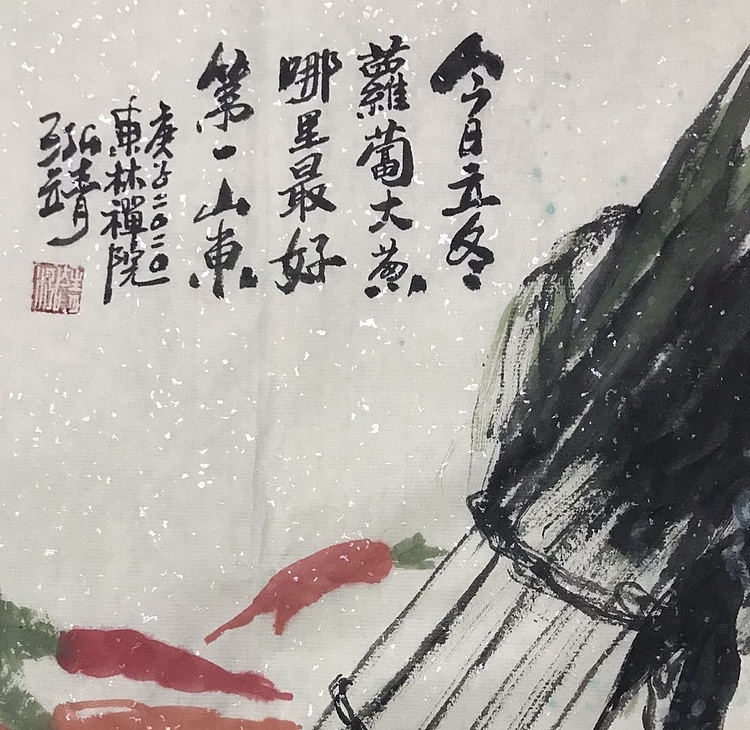 今日立冬
蘿蔔大葱
哪里最好
第一山東
庚子二〇二〇
東林禪院
靖